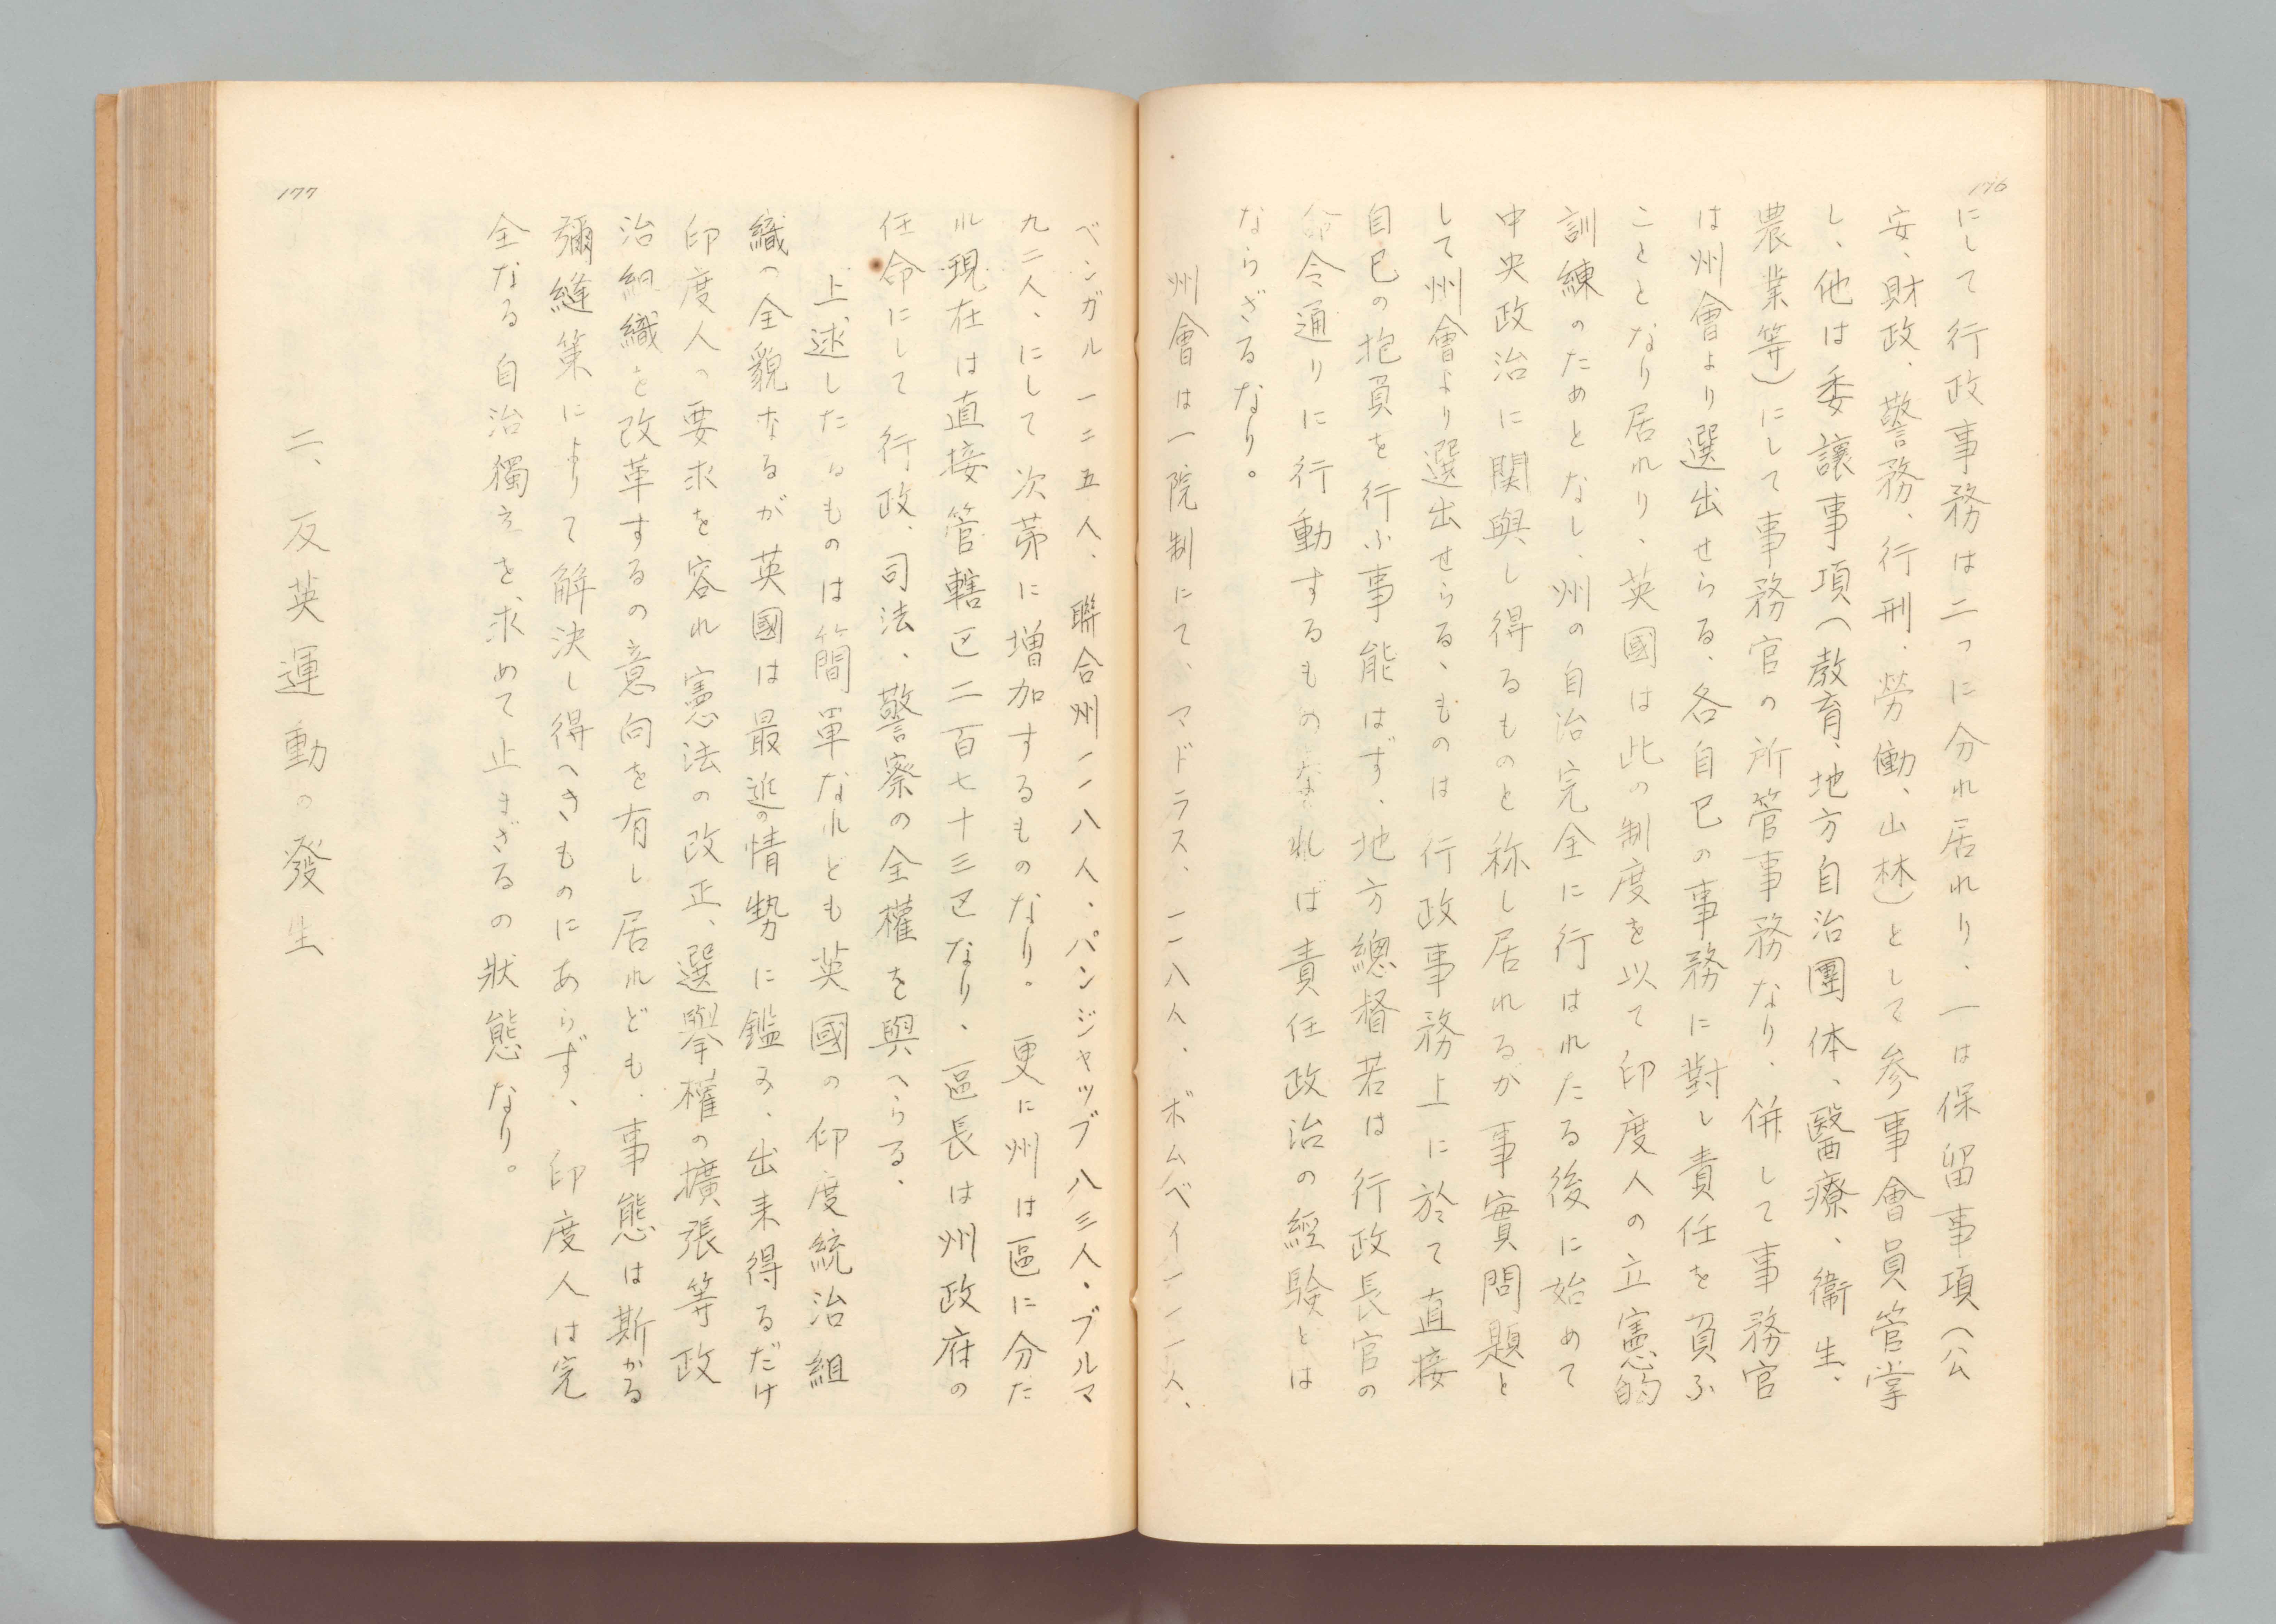 176
にして行政事務は二つに分れ居れり、一は保留事項(公
安、財政、警務、行刑、勞働、山林)として参事會員管掌
し、他は委讓事項(教育、地方自治團体、醫療、衞生、
農業等)にして事務官の所管事務なり、併して事務官
は州會より選出せらる、各自已の事務に對し責任を負ふ
こととなり居れり、英國は此の制度を以て印度人の立憲的
訓練のためとなし、州の自治完全に行はれたる後に始めて
中央政治に関與し得るものと称し居れるが事實問題と
して州會より選出せらる、ものは行政事務上に於て直接
自已の抱負を行ふ事能はず、地方總督若は行政長官の
命令通りに行動するものなれば責任政治の經験とは
ならざるなり。
州會は一院制にて、マドラス、一一八人、ボムベイ一一一人、
177
ベンガル一二五人、聯合州一一八人、パンジャッブ八三人、ブルマ
九二人、にして次第に増加するものなり。更に州は區に分た
れ現在は直接管轄区二百七十三区なり、區長は州政府の
任命にして行政、司法、警察の全權を與へらる、
上述したるものは簡單なれども英國の印度統治組
織の全貌なるが英國は最近の情勢に鑑み、出来得るだけ
印度人の要求を容れ憲法の改正、選擧權の擴張等政
治組織を改革するの意向を有し居れども、事態は斯かる
彌縫策によりて解決し得へきものにあらず、印度人は完
全なる自治獨立を求めて止まざるの狀態なり。
二、反英運動の發生